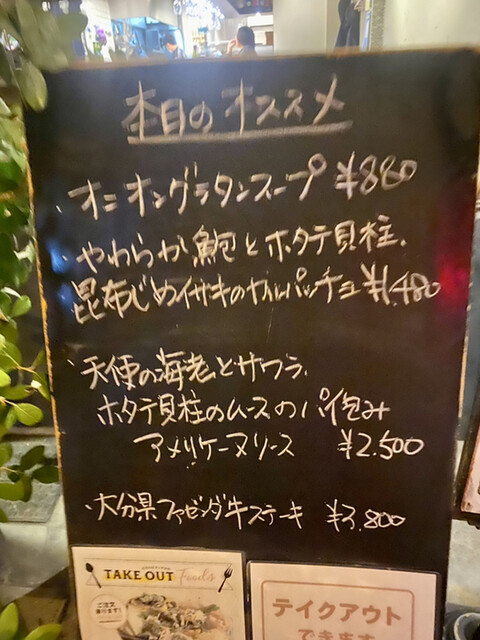 本日のオススメ
・オニオングラタンスープ ¥880
・やわらか鮑とホタテ貝柱、
昆布じめイサキのカルパッチョ ¥1,480
・天使の海老とサワラ、
ホタテ貝柱のムースのパイ包み
アメリケーヌソース ¥2,500
・大分県ファゼンダ牛ステーキ ¥3,800
TAKE OUT Foods
ご注文
承ります!
テイクアウト
できます